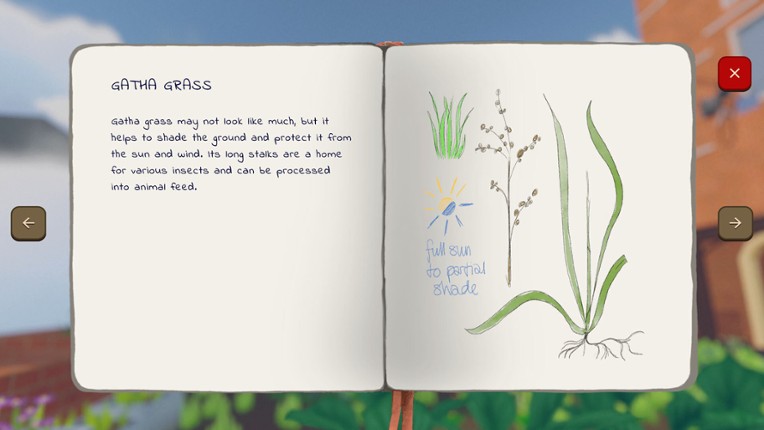 GATHA GRASS
Gatha grass may not look like much, but it
helps to shade the ground and protect it from
the sun and wind. Its long stalks are a home
for various insects and can be processed
into animal feed.
full sun
to partial
shade